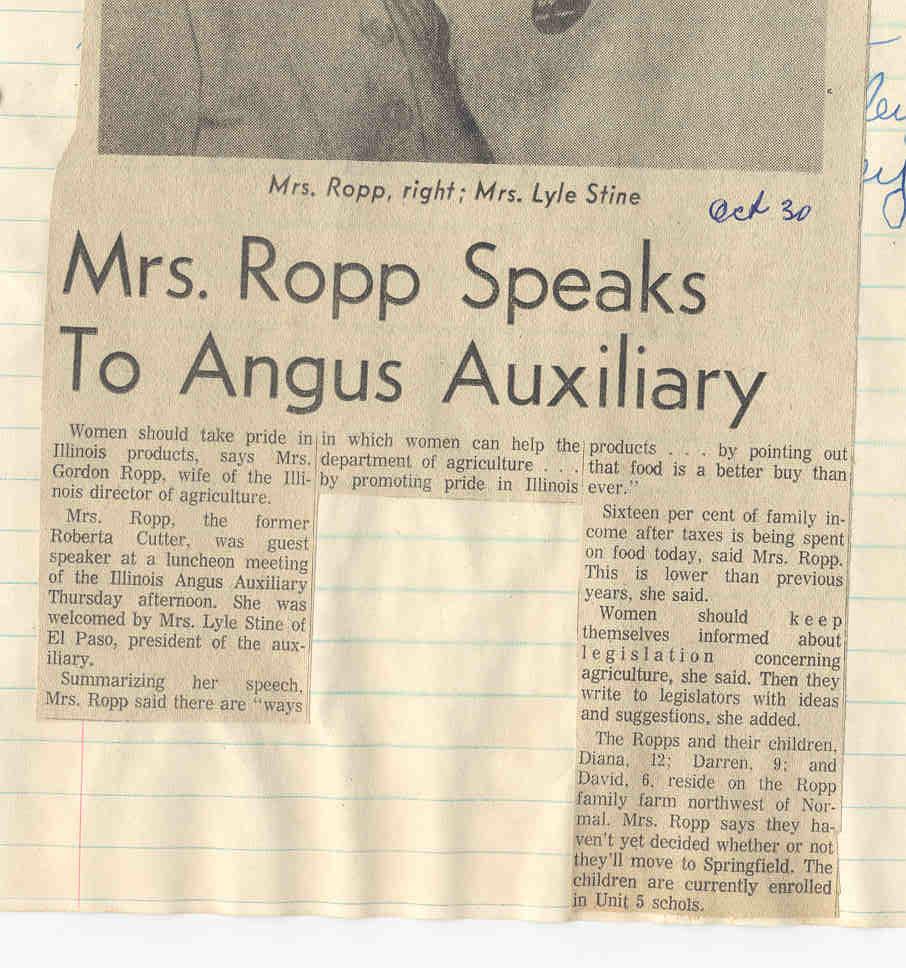 Mrs. Ropp, right; Mrs. Lyle Stine
Oct 30
Mrs. Ropp Speaks
To Angus Auxiliary
Women should take pride in
Illinois products, says Mrs.
Gordon Ropp, wife of the Illi-
nois director of agriculture.
Mrs. Ropp, the former
Roberta Cutter, was guest
speaker at a luncheon meeting
of the Illinois Angus Auxiliary
Thursday afternoon. She was
welcomed by Mrs. Lyle Stine of
El Paso, president of the aux-
iliary.
Summarizing her speech,
Mrs. Ropp said there are "ways
in which women can help the
department of agriculture . . .
by promoting pride in Illinois
products . . . by pointing out
that food is a better buy than
ever."
Sixteen per cent of family in-
come after taxes is being spent
on food today, said Mrs. Ropp.
This is lower than previous
years, she said.
Women should keep
themselves informed about
legislation concerning
agriculture, she said. Then they
write to legislators with ideas
and suggestions, she added.
The Ropps and their children,
Diana, 12; Darren, 9; and
David, 6, reside on the Ropp
family farm northwest of Nor-
mal. Mrs. Ropp says they ha-
ven't yet decided whether or not
they'll move to Springfield. The
children are currently enrolled
in Unit 5 schols.